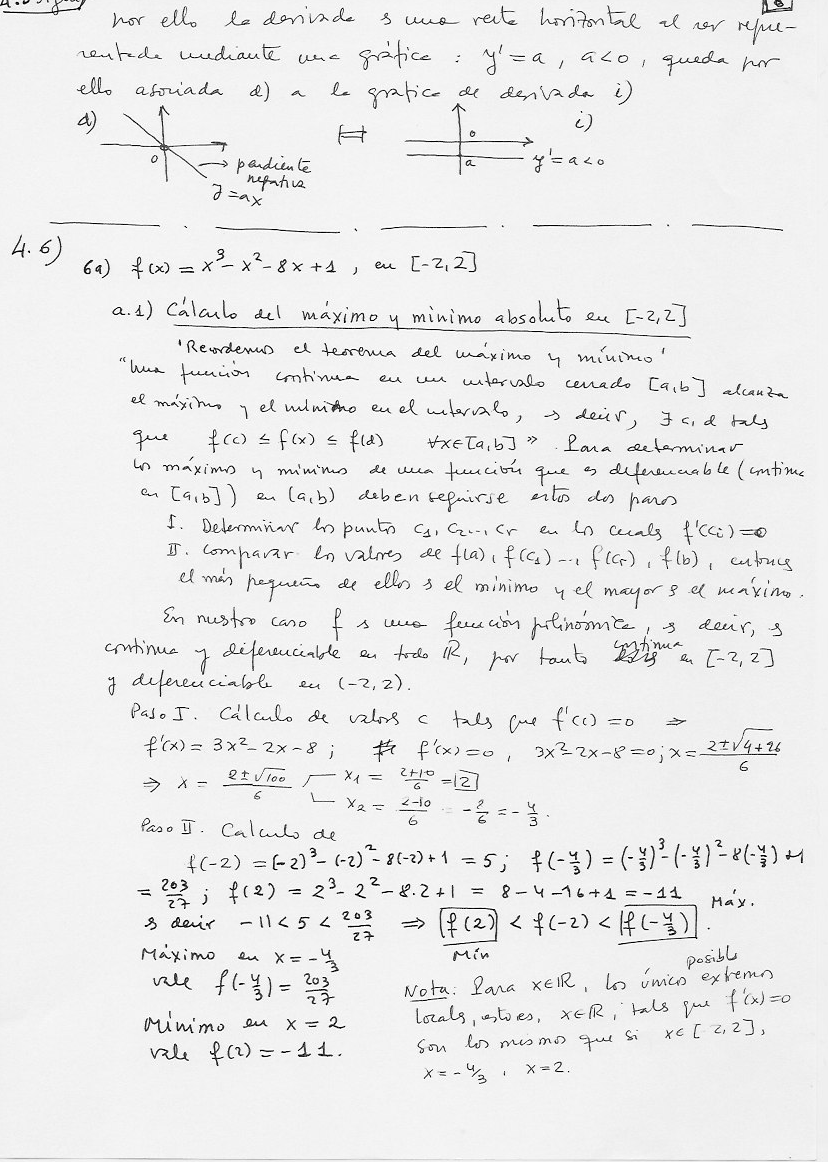 por ello la derivada es una recta horizontal al ser repre-
sentada mediante una gráfica : y' = a , a<0 , queda por
ello asociada d) a la grafica de derivada i)
d) i)
0 → pendiente negativa
y = ax
0
a y' = a < 0
4.6)
6a) f(x) = x³ - x² - 8x + 1 , en [-2,2]
a.1) Cálculo del máximo y mínimo absoluto en [-2,2]
'Recordemos el teorema del máximo y mínimo'
"Una función continua en un intervalo cerrado [a,b] alcanza
el máximo y el mínimo en el intervalo, es decir, ∃ c, d tales
que f(c) ≤ f(x) ≤ f(d) ∀x∈[a,b] ". Para determinar
los máximos y mínimos de una función que es diferenciable (continua
en [a,b]) en (a,b) deben seguirse estos dos pasos
I. Determinar los puntos c₁, c₂..., cr en los cuales f'(ci) = 0
II. Comparar los valores de f(a), f(c₁) ..., f(cr), f(b), entonces
el más pequeño de ellos es el mínimo y el mayor es el máximo.
En nuestro caso f es una función polinómica, es decir, es
continua y diferenciable en todo ℝ, por tanto continua en [-2,2]
y diferenciable en (-2,2).
Paso I. Cálculo de valores c tales que f'(c) = 0 ⇒
f'(x) = 3x² - 2x - 8 ; f'(x) = 0 , 3x² - 2x - 8 = 0 ; x = (2 ± √(4+96))/6
⇒ x = (2 ± √100)/6 x₁ = (2+10)/6 = 2
x₂ = (2-10)/6 = -8/6 = -4/3.
Paso II. Calculo de
f(-2) = (-2)³ - (-2)² - 8(-2) + 1 = 5 ; f(-4/3) = (-4/3)³ - (-4/3)² - 8(-4/3) + 1
= 203/27 ; f(2) = 2³ - 2² - 8·2 + 1 = 8 - 4 - 16 + 1 = -11
es decir -11 < 5 < 203/27 ⇒ f(2) < f(-2) < f(-4/3) . Máx.
Mín
Máximo en x = -4/3
vale f(-4/3) = 203/27
Mínimo en x = 2
vale f(2) = -11.
Nota: Para x∈ℝ, los únicos posibles extremos
locales, esto es, x∈ℝ, tales que f'(x) = 0
son los mismos que si x∈[-2,2],
x = -4/3 , x = 2.